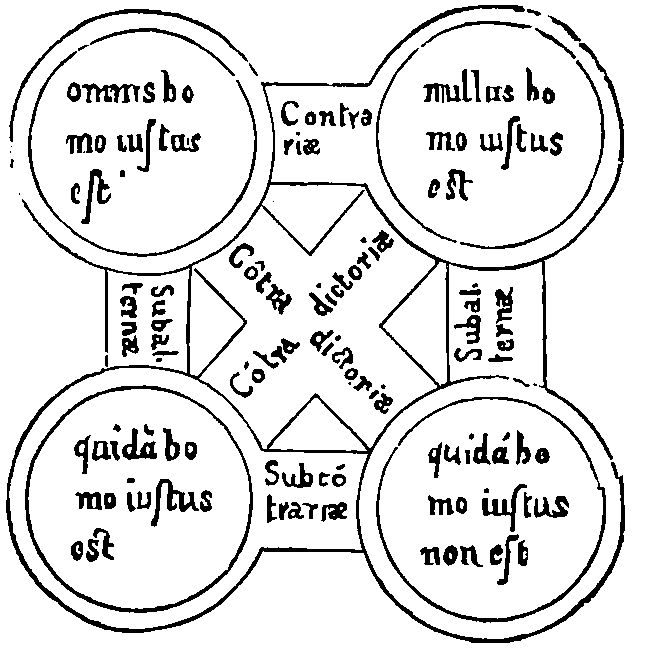 omnis ho
mo iuſtus
eſt
Contra
riæ
nullus ho
mo iuſtus
eſt
Subal.
ternæ
Côtra dictoriæ
Cótra dictoriæ
Subal.
ternæ
quidã ho
mo iuſtus
eſt
Subcó
trariæ
quidá ho
mo iuſtus
non eſt